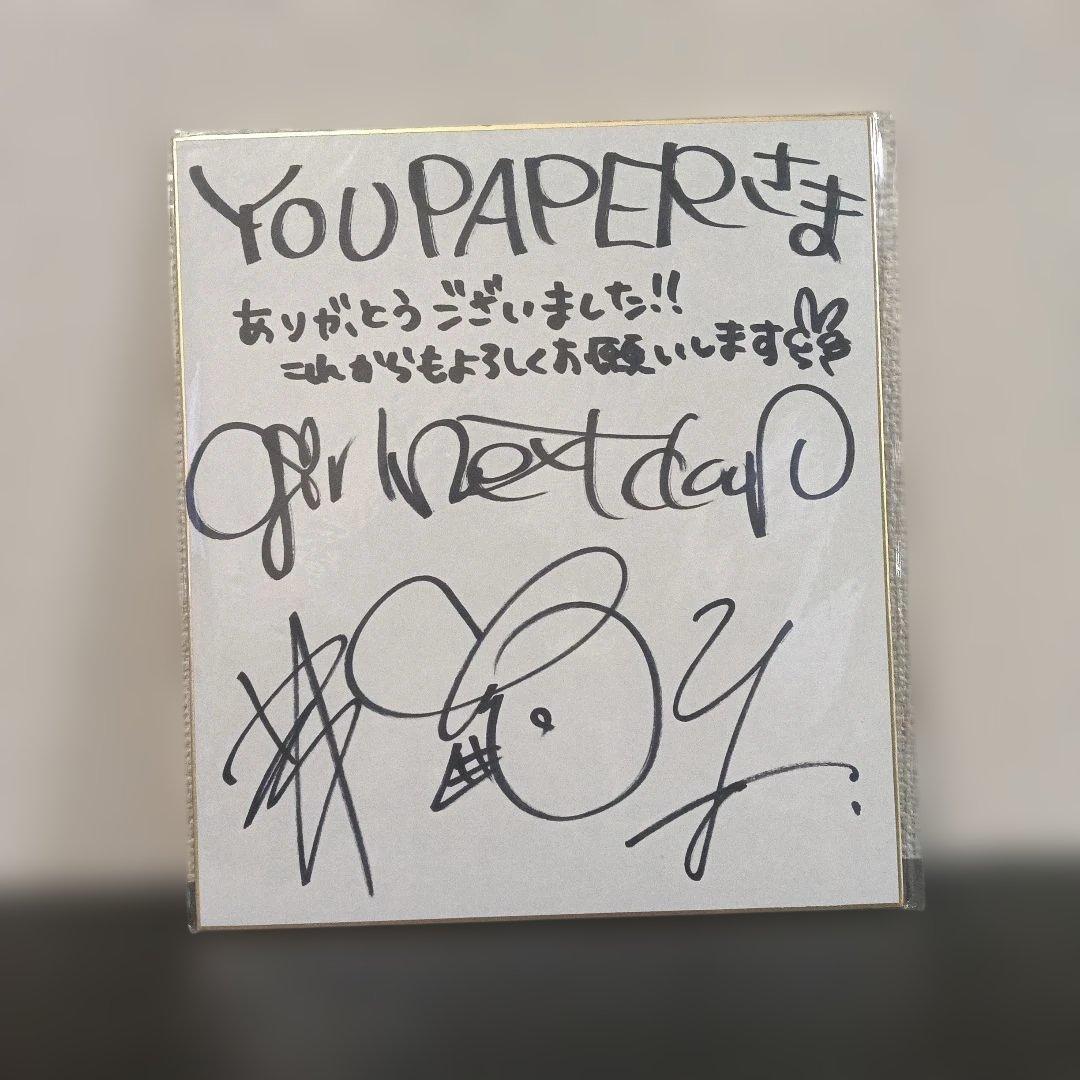 YOU PAPERさま
ありがとうございました!!
これからもよろしくお願いします
girl next door